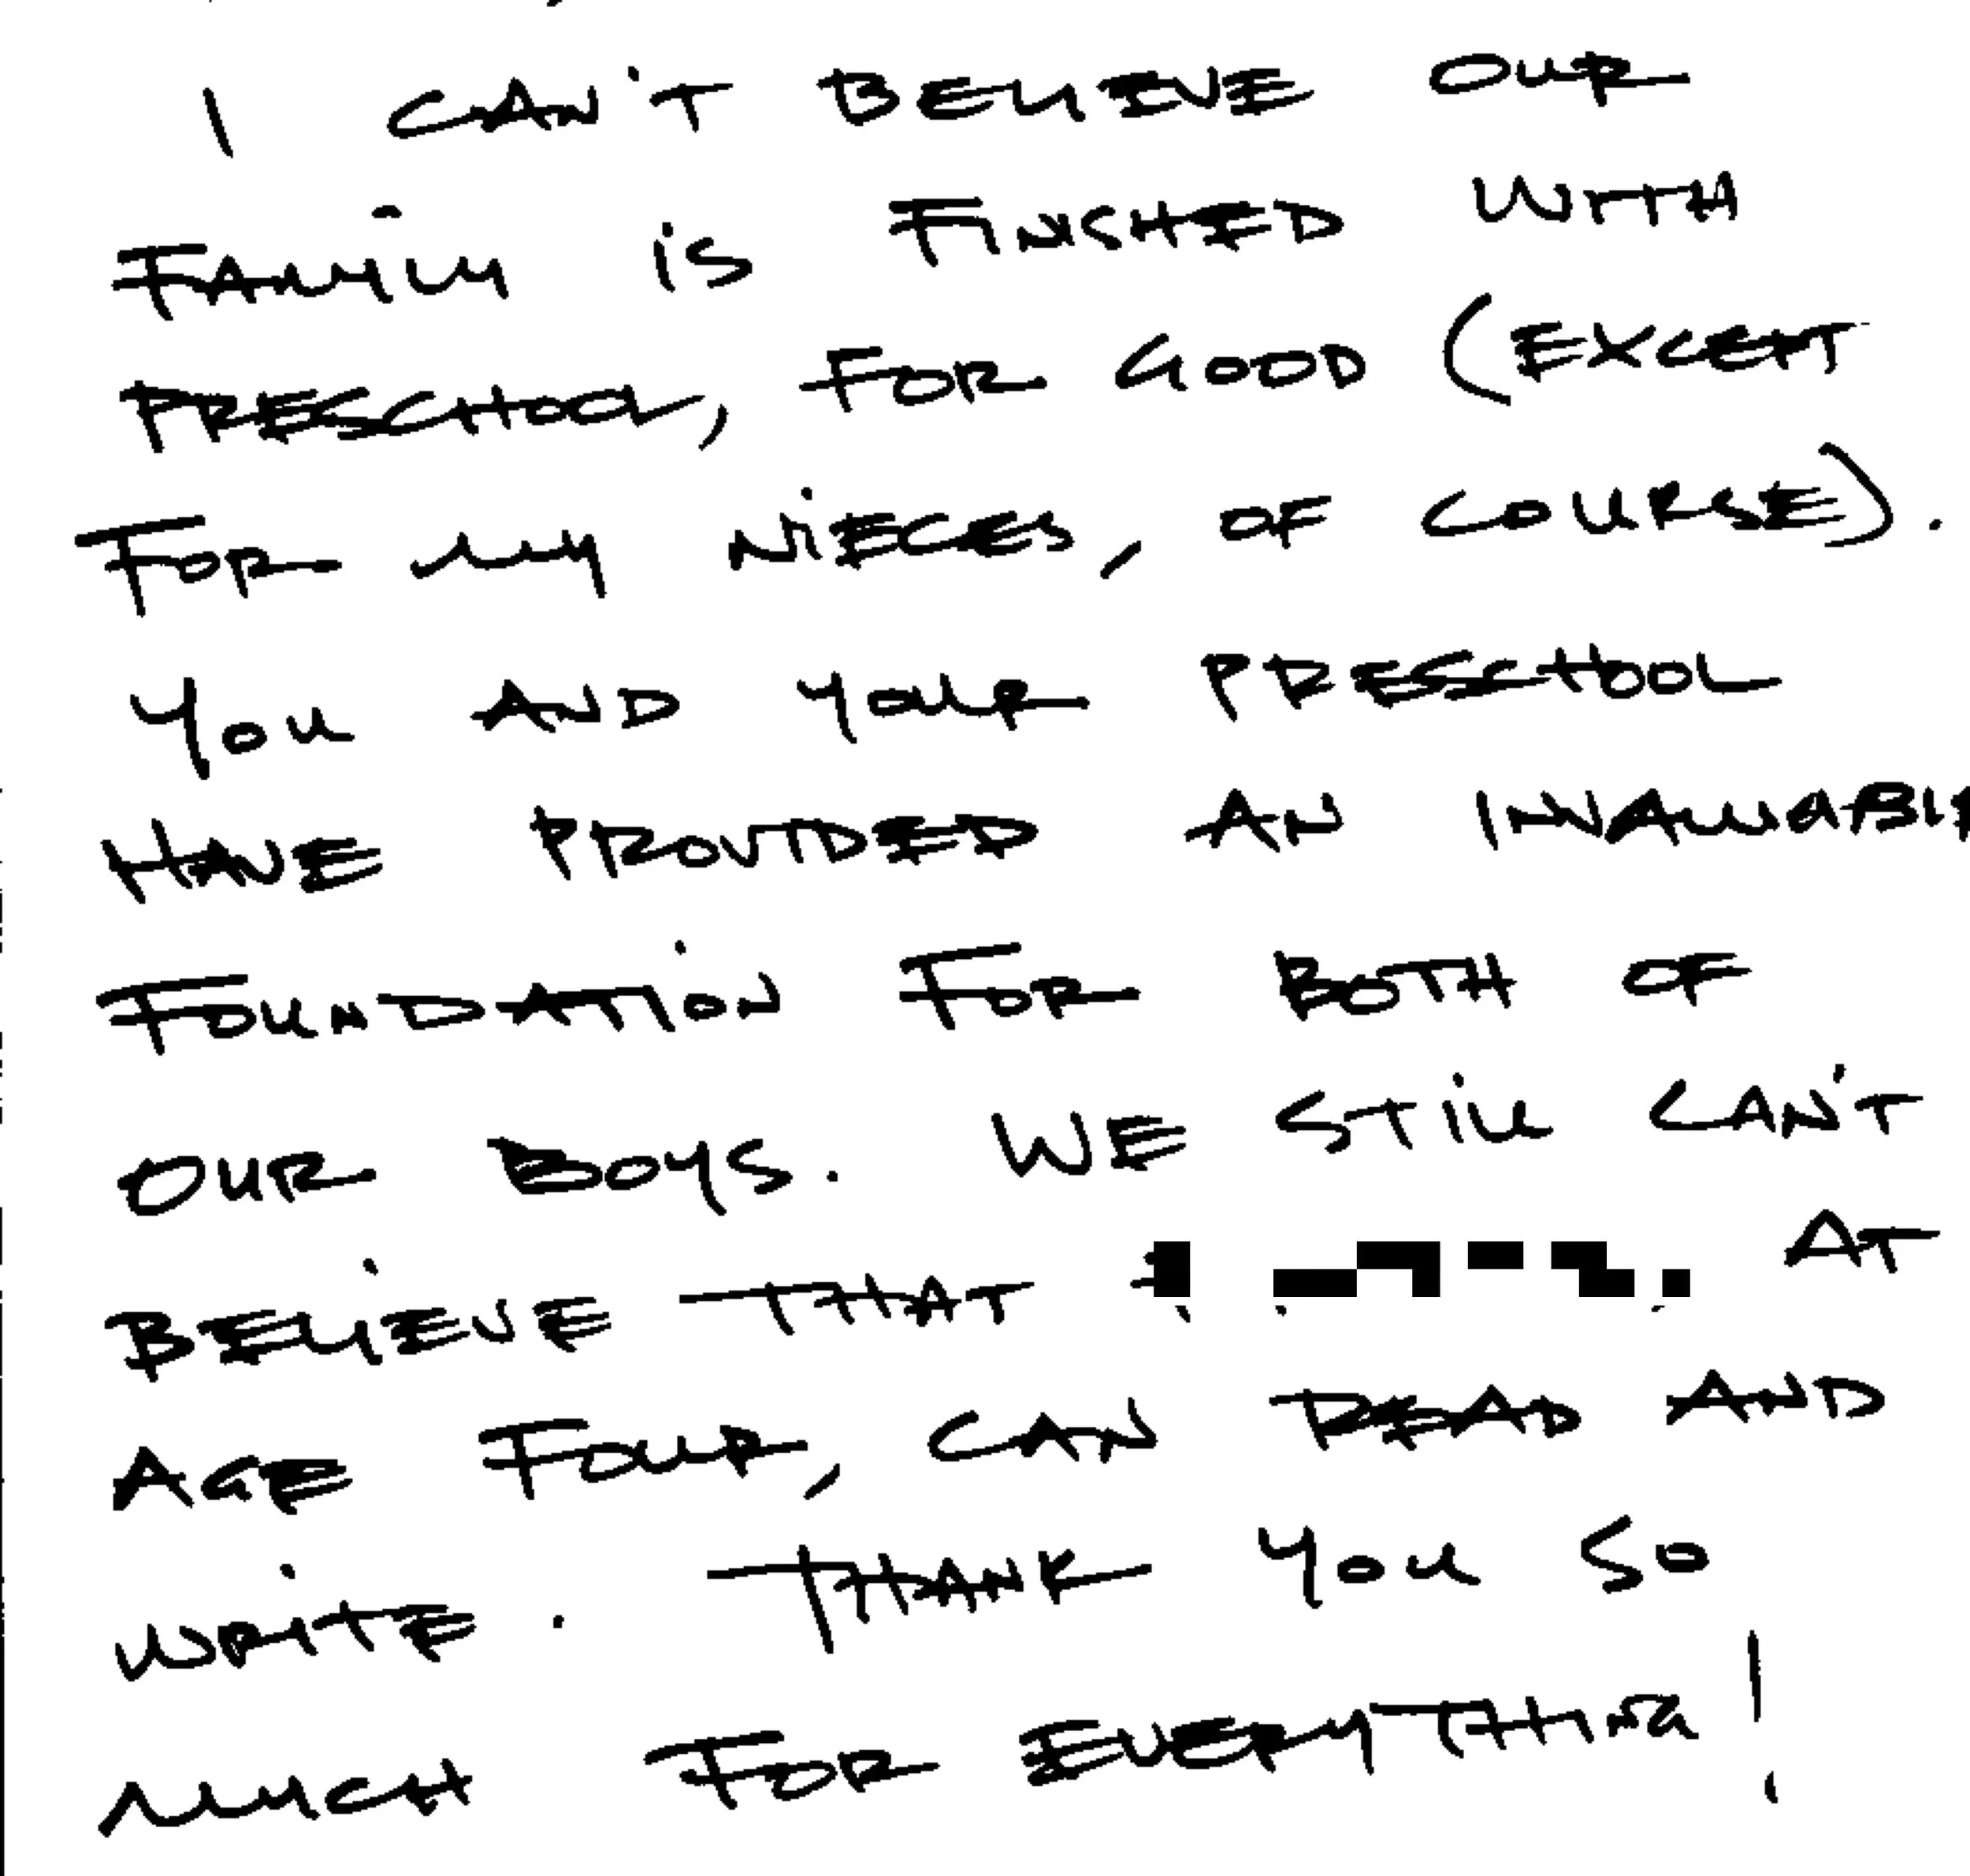 I CAN'T BELIEVE OUR
FAMILY IS FINISHED WITH
PRESCHOOL, FOR GOOD (EXCEPT
FOR MY NIECES, OF COURSE).
YOU AND YOUR PRESCHOOL
HAVE PROVIDED AN INVALUABLE
FOUNDATION FOR BOTH OF
OUR BOYS. WE STILL CAN'T
BELIEVE THAT AT
AGE FOUR, CAN READ AND
WRITE. THANK YOU SO
MUCH FOR EVERYTHING!